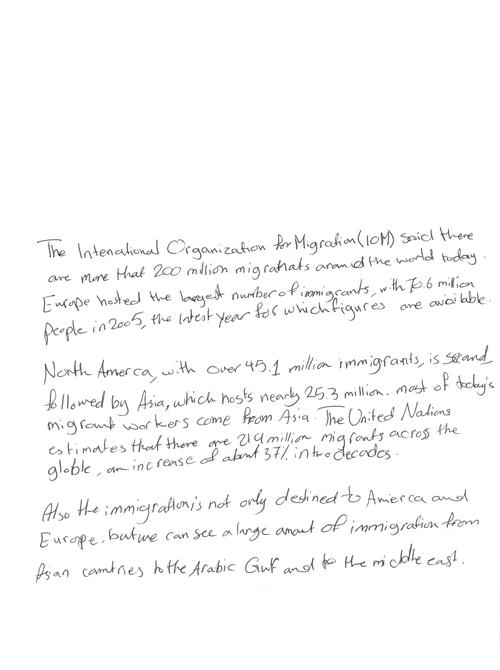 The Intenational Organization for Migration (IOM) said there
are more that 200 million migratnats around the world today.
Europe hosted the largest number of immigrants, with 70.6 million
people in 2005, the latest year for which figures are available.
North Amerca, with over 45.1 million immigrants, is second
followed by Asia, which hosts nearly 25.3 million. most of today's
migrant workers come from Asia. The United Nations
estimates that there are 214 million migrants across the
globle, an increase of about 37% in two decades.
Also the immigration is not only destined to Amierca and
Europe, but we can see a large amout of immigration from
Asian countries to the Arabic Gulf and to the middle east.